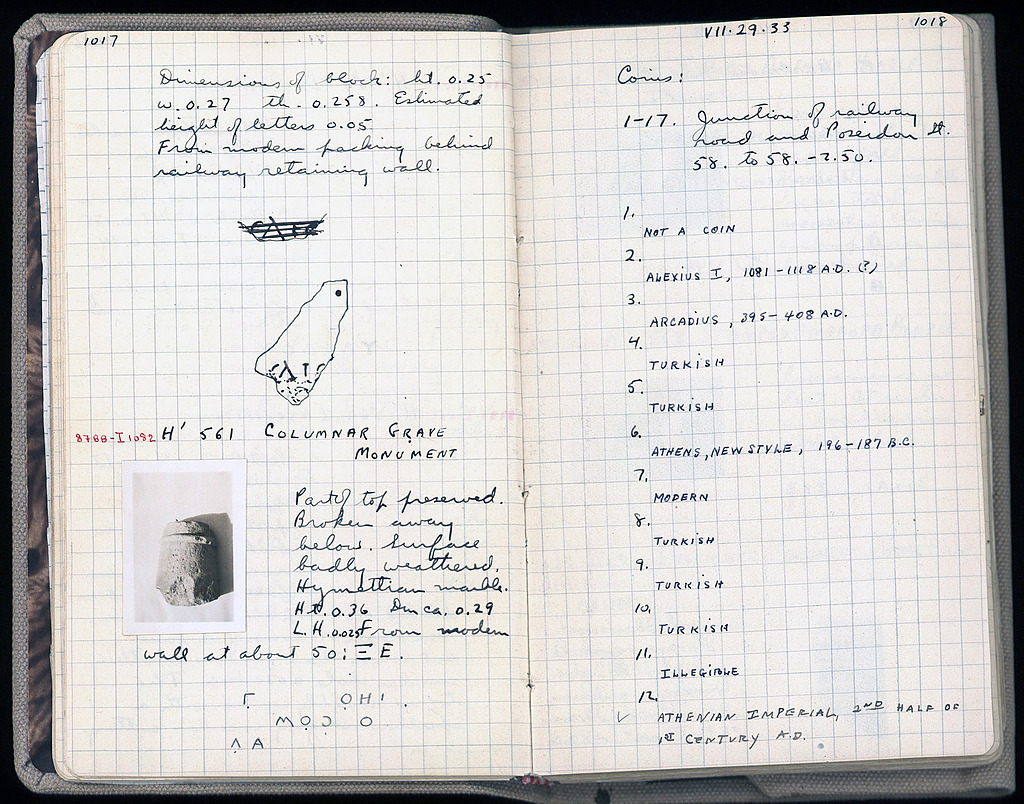 1017
Dimensions of block: ht. 0.25
w. 0.27 th. 0.258. Estimated
height of letters 0.05
From modern packing behind
railway retaining wall.
Λ Τ
8788-I 1082 H' 561 COLUMNAR GRAVE
MONUMENT
Part of top preserved.
Broken away
below. Surface
badly weathered.
Hymettian marble.
Ht. 0.36 Dm ca. 0.29
L.H. 0.025 From modern
wall at about 50; ΞΕ.
Γ ΟΗΙ
Ο Ο
Λ Α
VII.29.33
1018
Coins:
1-17. Junction of railway
road and Poseidon St.
58. to 58. -2.50.
1.
NOT A COIN
2.
ALEXIUS I, 1081-1118 A.D. (?)
3.
ARCADIUS, 395-408 A.D.
4.
TURKISH
5.
TURKISH
6.
ATHENS, NEW STYLE, 196-187 B.C.
7.
MODERN
8.
TURKISH
9.
TURKISH
10.
TURKISH
11.
ILLEGIBLE
12.
✓ ATHENIAN IMPERIAL, 2ND HALF OF
1ST CENTURY A.D.